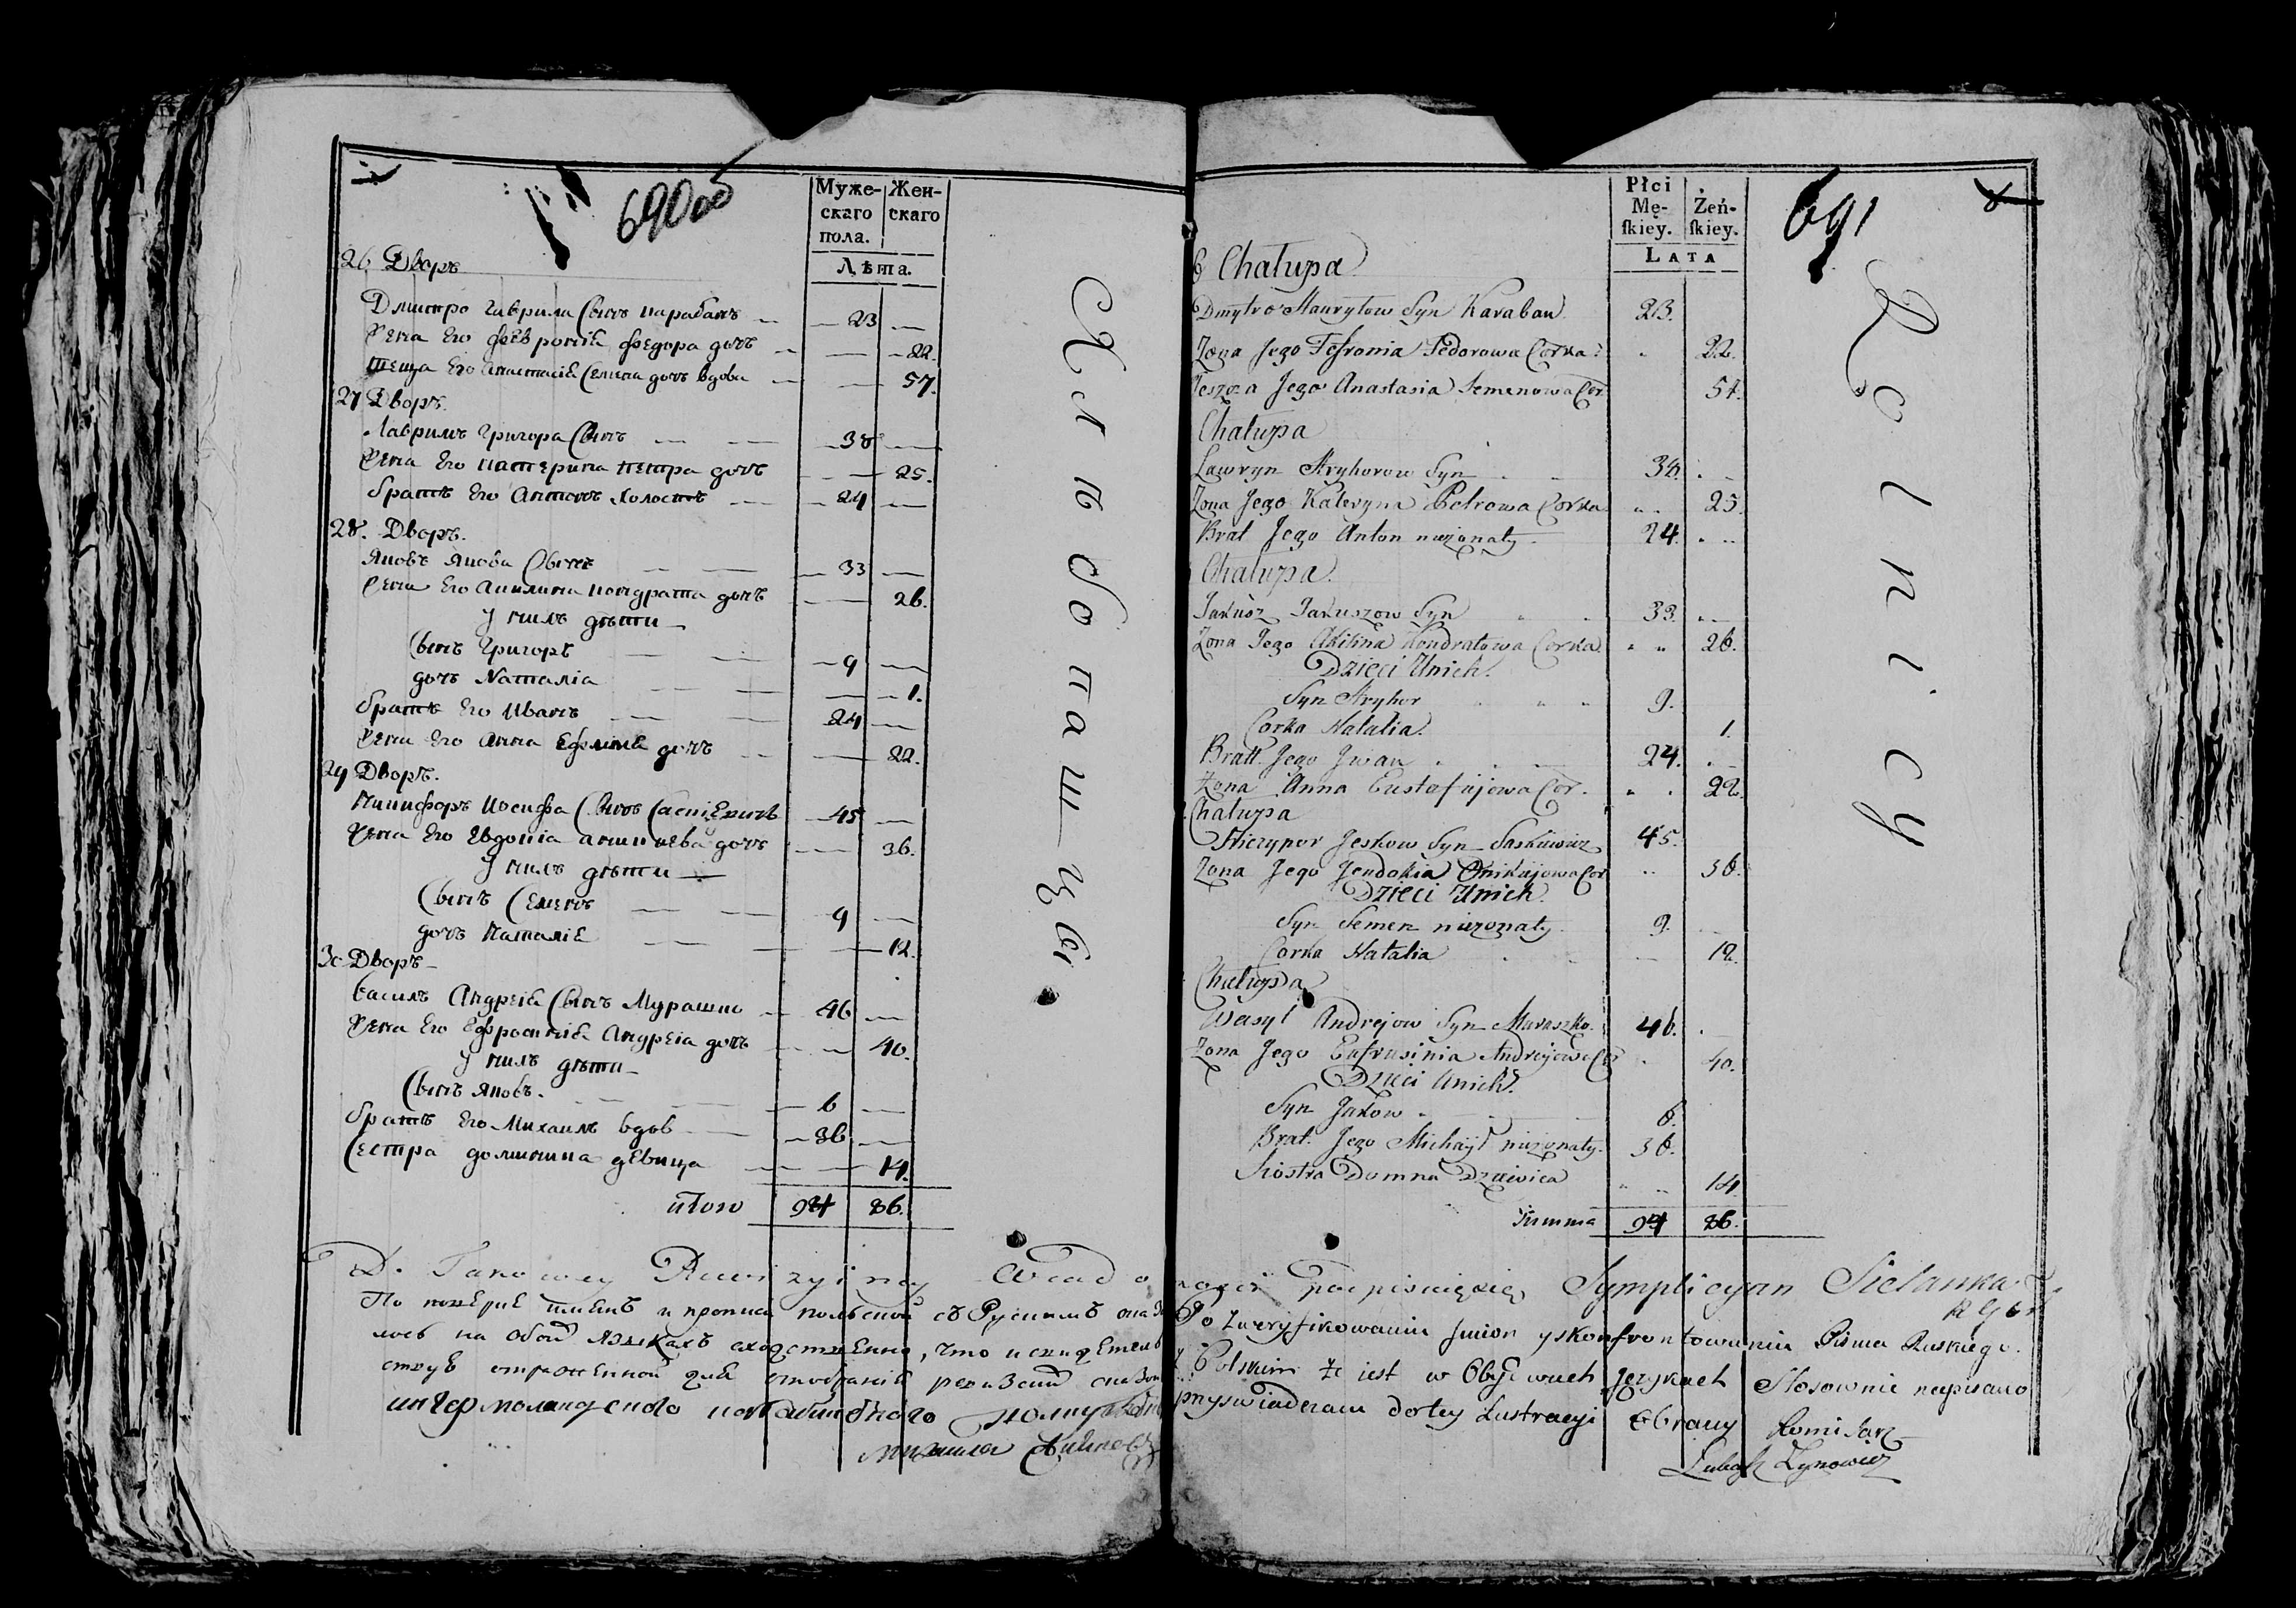 690 об
Муже- Жен-
скаго скаго
пола.
Лѣта.
26 Дворъ
Дмитро Гаврила Сынъ Карабанъ 23
Жена Его Февронія Федора дочъ 22.
теща Его Анастасія Семена дочъ вдова 57.
27 Дворъ.
Лавринъ Григора Сынъ 38
Жена Его Катерина Петра дочъ 25.
братъ Его Антонъ Холостъ 24
28. Дворъ.
Яковъ Якова Сынъ 33
Жена Его Акилина Кондрата дочъ 26.
У нихъ дѣти
Сынъ Григоръ 9
дочъ Наталіа 1.
братъ Его Иванъ 24
Жена Его Анна дочъ 22.
29 Дворъ.
Никифоръ Иосифа Сынъ 45
Жена Его Евдокіа дочъ 36.
У нихъ дѣти
Сынъ Семенъ 9
дочъ Наталіа 12.
30 Дворъ
Василъ Андреа Сынъ Мурашко 46
Жена Его Ефросиніа Андреіа дочъ 40.
У нихъ дѣти
Сынъ Яковъ. 6
братъ Его Михаилъ вдовъ 36
Сестра девица 14.
Итого 94 86.
Хлѣбопашцы
691
Płci
Mę- Żeń-
skiey. skiey.
LATA
6 Chałupa
Dmytro Hawryłow Syn Karaban 23.
Zona Jego Fefronia Fedorowa Corka 22.
Teszcza Jego Anastasia Semenowa Cor. 57.
Chałupa
Ławryn Hryhorow Syn 38.
Zona Jego Kateryna Petrowa Corka 25.
Brat Jego Anton niezonaty 24.
Chałupa.
Jakusz Jakuszow Syn 33.
Zona Jego Akilina Kondratowa Corka 26.
Dzieci Unich.
Syn Hryhor 9.
Corka Natalia. 1.
Bratt Jego Jwan 24.
Zona Anna Eustafijewa Cor. 22.
Chałupa
Niczypor Jeskow Syn Saskiewicz 45.
Zona Jego Jeudokia Onikiijewa Cor 36.
Dzieci Unich.
Syn Semen niezonaty 9.
Corka Natalia 12.
Chałupa
Wasyl Andrejow Syn Muraszko. 46.
Zona Jego Eufrusinia Andrejewa Cor 40.
Dzieci Unich.
Syn Jakow 6.
Brat Jego Michaył niezonaty. 36.
Siostra Domna Dziewica 14
Summa 94 86.
Rolnicy
Do Takowey Rewizyiney Wiado
mosci podpisuię się Symplicyan Sielanka
По повѣркѣ именъ и прописи польской съ Рускимъ оказа
лось на обоихъ языкахъ сходственно, что и свидетель
ствуѣ
Михаила
Po Zweryfikowaniu Jmion y skonfrontowaniu Pisma Ruskiego.
z Polskim ze iest w Obydwuch Językach Stosownie napisano
przyswiadczam do tey Lustracyi Obrany Komisarz